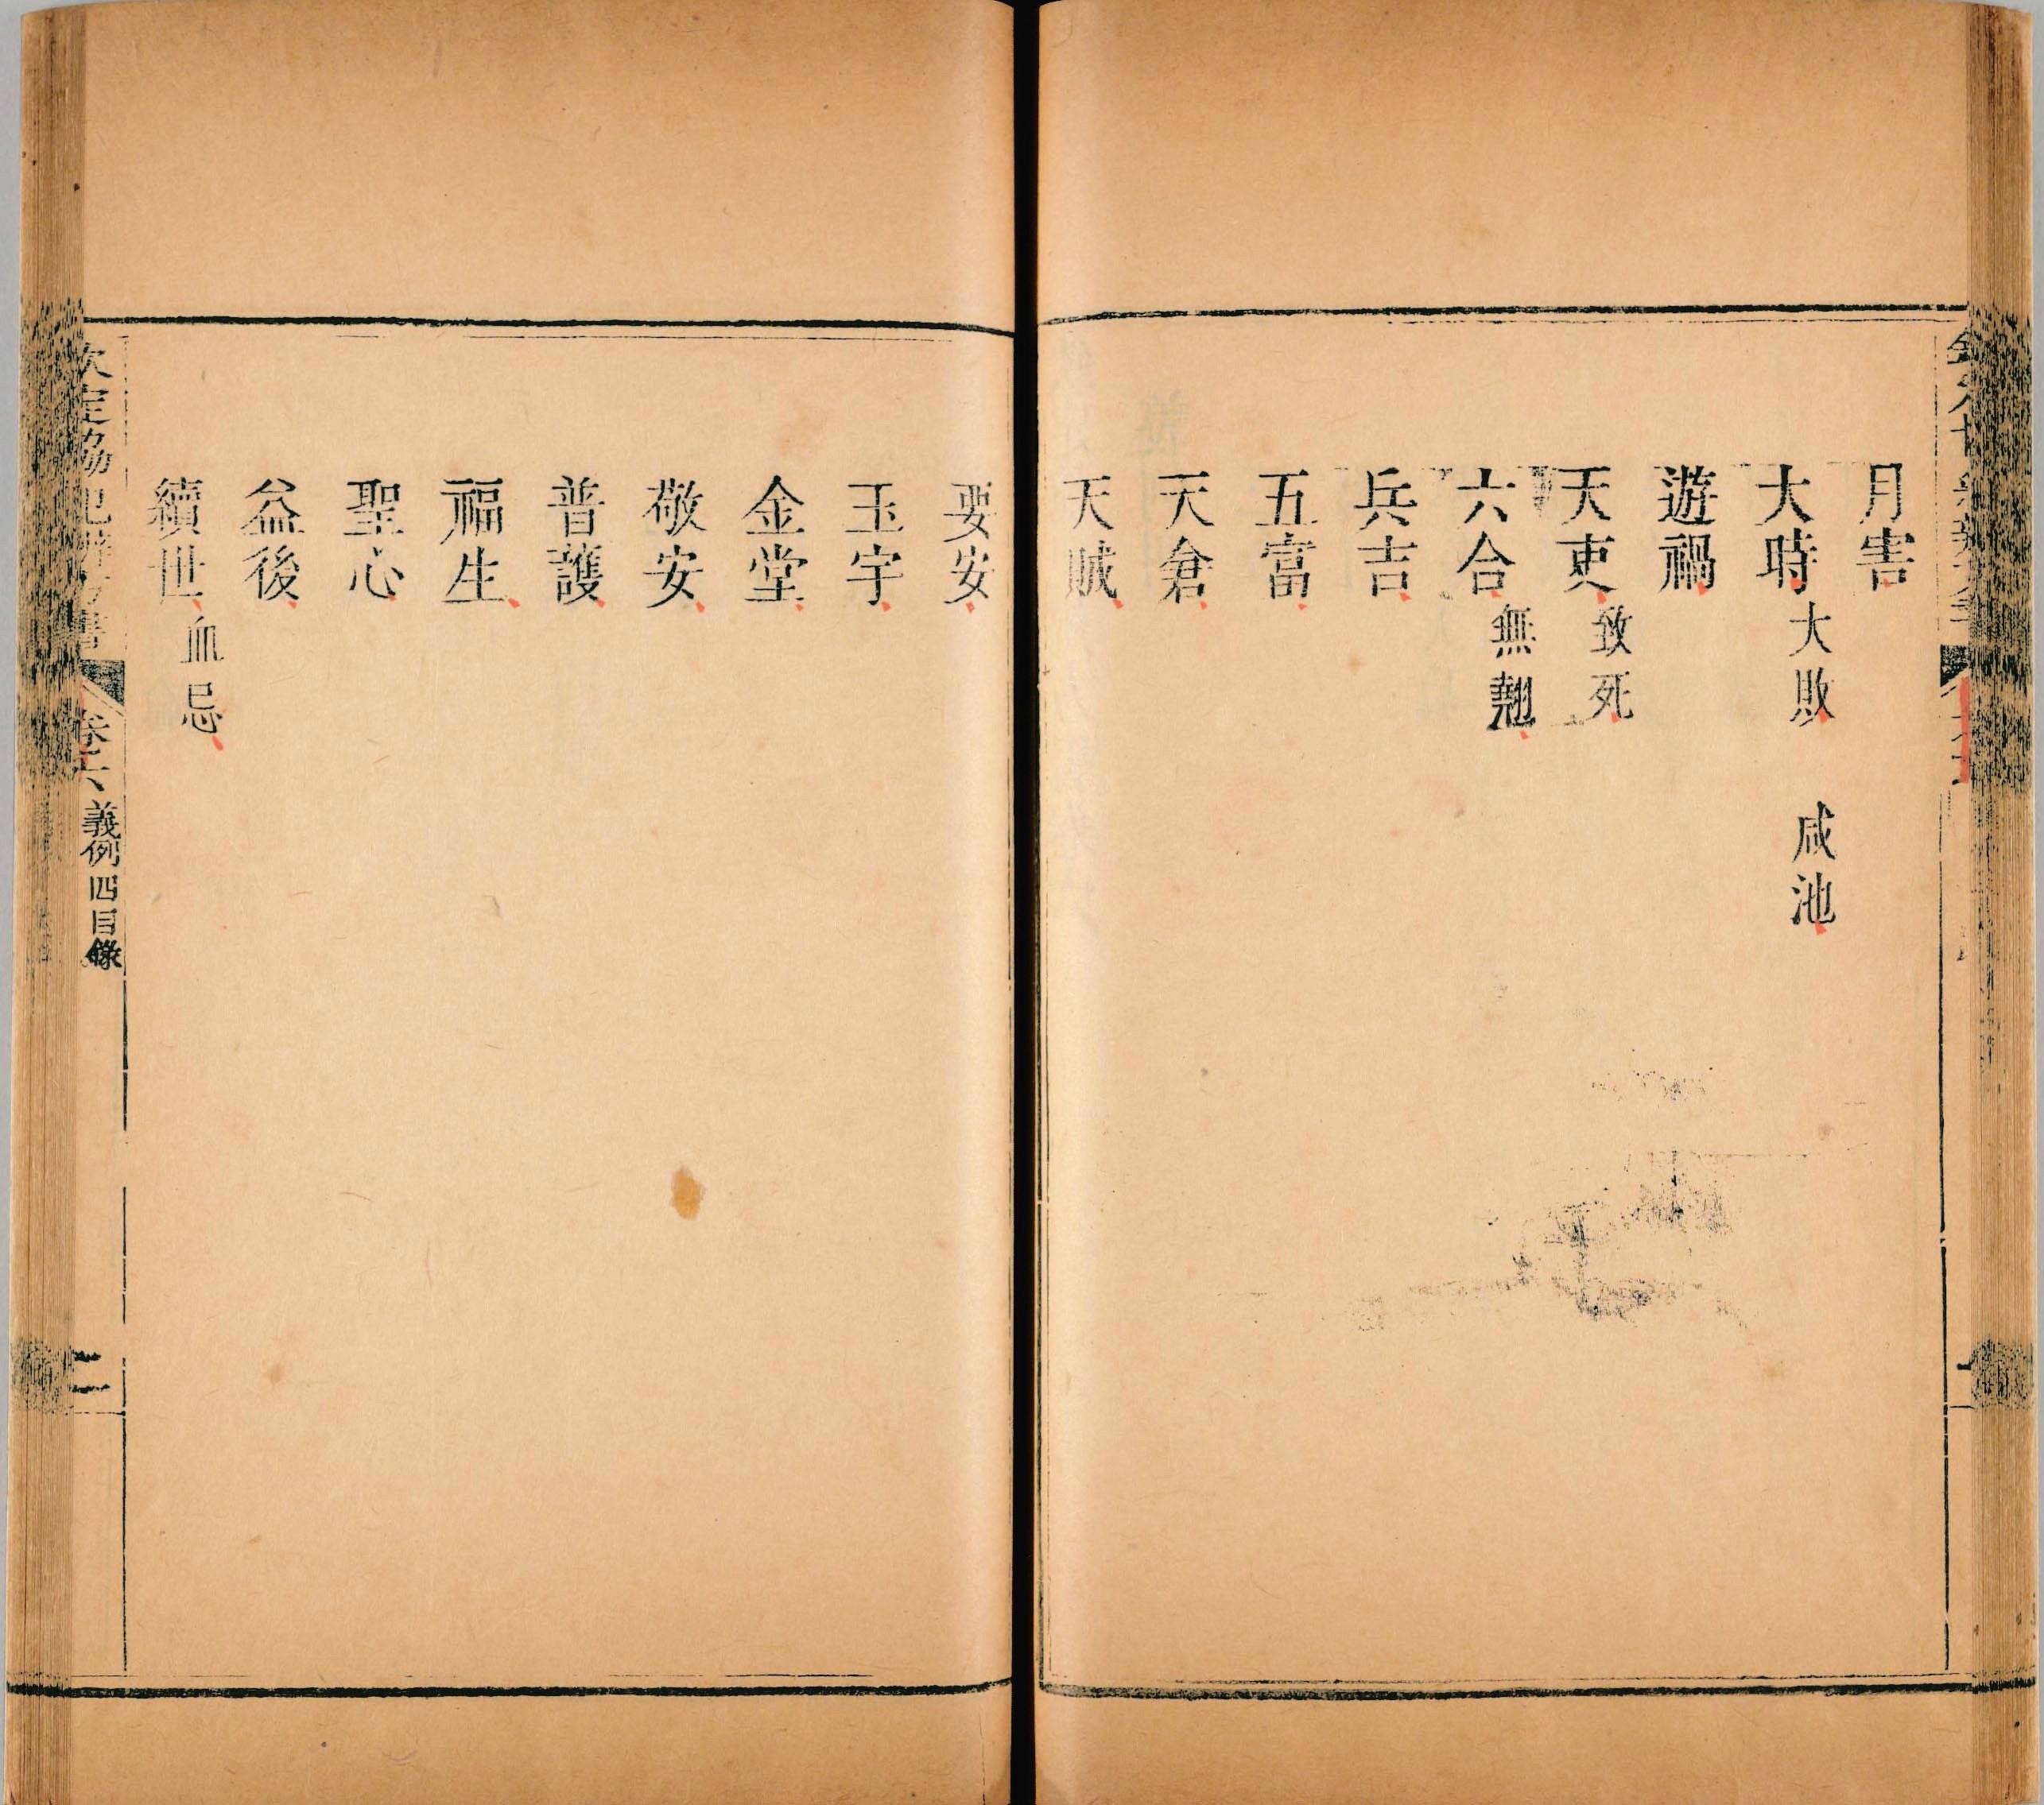 月害
大時大敗 咸池
遊禍
天吏致死
六合無翹
兵吉
五富
天倉
天賊
要安
玉宇
金堂
敬安
普護
福生
聖心
益後
續世血忌
欽定協紀辨方書 卷六 義例四目錄 二